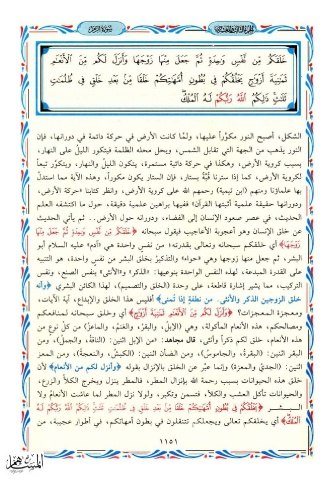 خَلَقَكُم مِّن نَّفْسٍ وَٰحِدَةٍ ثُمَّ جَعَلَ مِنْهَا زَوْجَهَا وَأَنزَلَ لَكُم مِّنَ ٱلْأَنْعَٰمِ
ثَمَٰنِيَةَ أَزْوَٰجٍ يَخْلُقُكُمْ فِى بُطُونِ أُمَّهَٰتِكُمْ خَلْقًا مِّنۢ بَعْدِ خَلْقٍ فِى ظُلُمَٰتٍ
ثَلَٰثٍ ذَٰلِكُمُ ٱللَّهُ رَبُّكُمْ لَهُ ٱلْمُلْكُ
الشكل، أصبح النور مكوّراً عليها، ولمّا كانت الأرض في حركة دائمة في دورانها، فإن
النور يذهب من الجهة التي تقابل الشمس، ويحل محله الظلمة فيتكور الليل على النهار،
بسبب كروية الأرض، وهكذا في حركة دائبة مستمرة، يتكون الليل والنهار، ويتكوّر تبعاً
لكروية الأرض، كما إذا سترنا قبّة بستار، فإن الستار يكون مكوراً، وهذه الآية مما استدلّ
بها علماؤنا ومنهم (ابن تيمية) رحمهم الله على كروية الأرض، وانظر كتابنا «حركة الأرض،
ودورانها حقيقة علمية أثبتها القرآن» ففيها براهين علمية دقيقة، حول ما اكتشفه العلم
الحديث، في عصر صعود الإنسان إلى الفضاء، ودورته حول الأرض.. ثم يأتي الحديث
عن خلق الإنسان وهو أعجوبة الأعاجيب فيقول سبحانه ﴿خَلَقَكُم مِّن نَّفْسٍ وَٰحِدَةٍ ثُمَّ جَعَلَ مِنْهَا
زَوْجَهَا﴾ أي خلقكم سبحانه وتعالى بقدرته، من نفسٍ واحدة هي «آدم» عليه السلام أبو
البشر، ثم جعل منها زوجها وهي «حواء» والتذكير بخلق البشر من نفس واحدة، هو التنبيه
على القدرة المبدعة، لهذه النفس الواحدة بنوعيها: «الذكر» و«الأنثى» بنفس الصنع، ونفس
التركيب، مما يشير إشارة قاطعة، على وحدة «الخلق والتصميم»، لهذا الكائن البشري، ﴿وأنه
خلق الزوجين الذكر والأنثى. من نطفة إذا تمنى﴾ أفليس هذا الخلق والإبداع، آية الآيات،
ومعجزة المعجزات؟ ﴿وَأَنزَلَ لَكُم مِّنَ ٱلْأَنْعَٰمِ ثَمَٰنِيَةَ أَزْوَٰجٍ﴾ أي وخلق سبحانه لمنافعكم
ومصالحكم، هذه الأنعام المأكولة، وهي (الإبل، والبقر، والغنم، والماعز) من كلّ نوعٍ من
هذه الأنعام، خلق لكم ذكراً وأنثى، قال مجاهد: «من الإبل اثنين: (الناقة، والجمل)، ومن
البقر اثنين: (البقرة، والجاموس)، ومن الضأن اثنين: (الكبش، والنعجة)، ومن المعز
اثنين: (الجدي، والمعزة) وإنما عبّر عن الخلق بالإنزال بقوله ﴿وأنزل لكم من الأنعام﴾ لأن
خلق هذه الحيوانات بسبب رحمة الله بإنزال المطر، فالمطر ينزل ويخرج الكلأ والزرع،
والحيوانات تأكل العشب والكلأ، فتسمن وتكبر، ولولا نزول المطر لما عاشت الأنعام ولا
البشر ﴿يَخْلُقُكُمْ فِى بُطُونِ أُمَّهَٰتِكُمْ خَلْقًا مِّنۢ بَعْدِ خَلْقٍ فِى ظُلُمَٰتٍ ثَلَٰثٍ ذَٰلِكُمُ ٱللَّهُ رَبُّكُمْ لَهُ
ٱلْمُلْكُ﴾ أي يخلقكم تعالى ويجعلكم تتنقلون في بطون أمهاتكم، في أطوار عجيبة، من
١١٥١